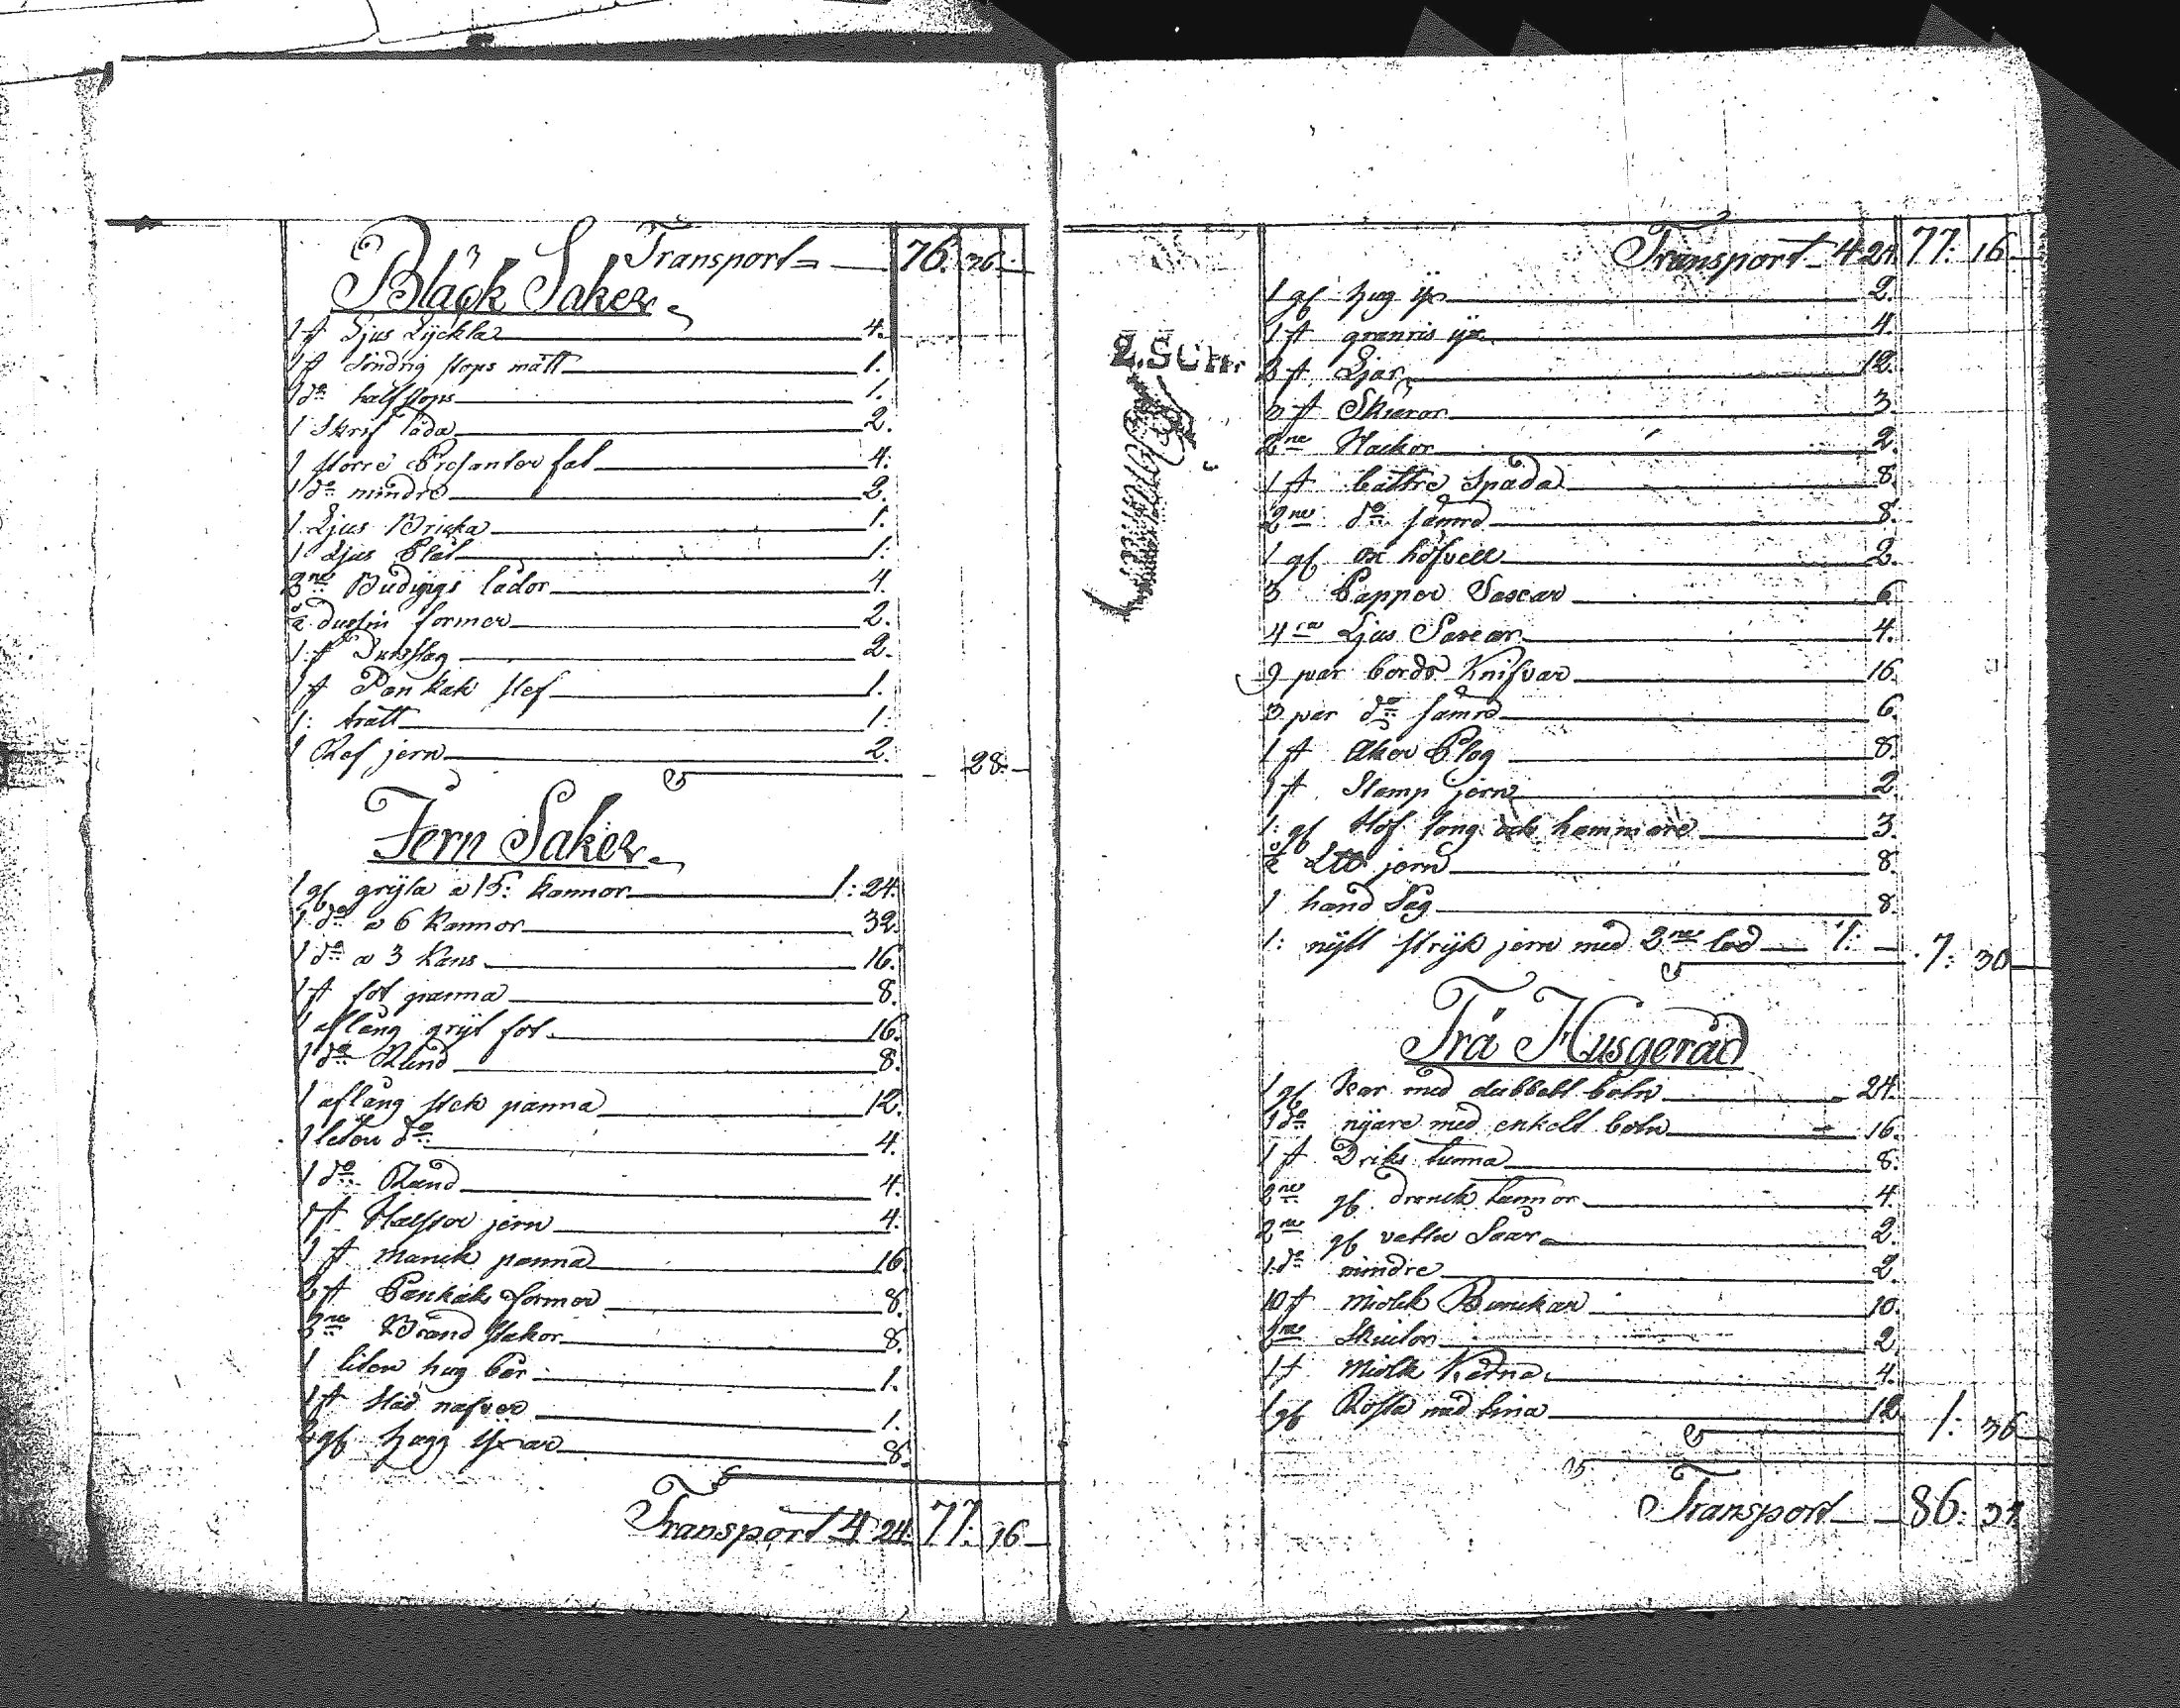 Transport 76. 36.
Bläck Saker
1 st Ljus Lyckta 4.
1 st Söndrig stops mått 1.
1 do half stops 1.
1 Skrif låda 2.
1 större Presenter fat 4.
1 do mindre 2.
1 Ljus Bricka 1.
1 Ljus Plåt 1.
Budings lådor 4.
dussin former 2.
1 st Durkslag 2.
1 st Pan kak slef 1.
1: tratt 1.
1 Ref jern 2. 28.
Jern Saker
1 gl gryta a 15: kannor 1: 24.
1 do a 6 Kannor 32.
1 do a 3 Kans 16.
1 st fot panna 8.
1 aflång gryt fot 16.
1 do Rund 8.
1 aflång stek panna 12.
1 liten do 4.
1 do Rund 4.
1 st jern 4.
1 st Munck panna 16.
2 st Pankaks former 8.
2ne Brand stakar 8.
1 liten hug bår 1.
1 st Städ nafvar 1.
2 gl hugg Yxar 8.
Transport 4 24. 77. 16
Transport 4 24. 77: 16
1 gl hug yx 2.
1 st granris yx 4.
3 st Ljar 12.
3 st Skiæror 3.
2ne Hackor 2.
2.SCH.
1 st bättre Spada 8.
2ne do sämre 8.
1 gl ox höfvell 2.
3 Papper Saxar 6.
4ra Ljus Saxar 4.
9 par bords Knifvar 16.
3 par do sämre 6.
1 st Åker Plog 8.
1 st Stamp jern 2.
1: gl Hof tång och hammare 3.
jern 8.
1 hand Såg 8.
1: nytt stryk jern med 2ne lod 1: 7: 30
Trä Husgeråd
1 gl kar med dubbelt botn 24.
1 do nyare med enkelt botn 16.
1 st Driks tunna 8.
2ne gl dranck tunnor 4.
2ne gl vattu Såar 2.
1 do mindre 2.
10 st Miölck Bunckar 10.
2ne Skiulor 2.
1 st Miölk Kärna 4.
1 gl Råssla med lina 12. 1: 36
Transport 86: 34